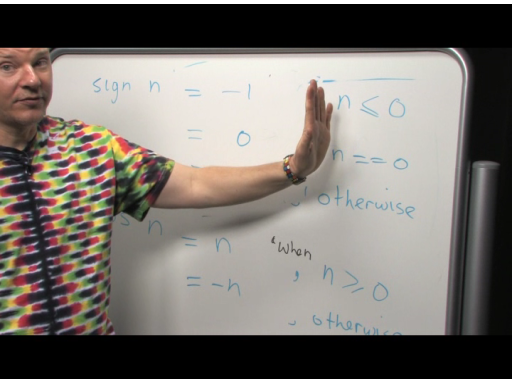 sign n = -1 n ≤ 0
= 0 n == 0
, otherwise
s n = n "when
= -n , n ≥ 0
, otherwise